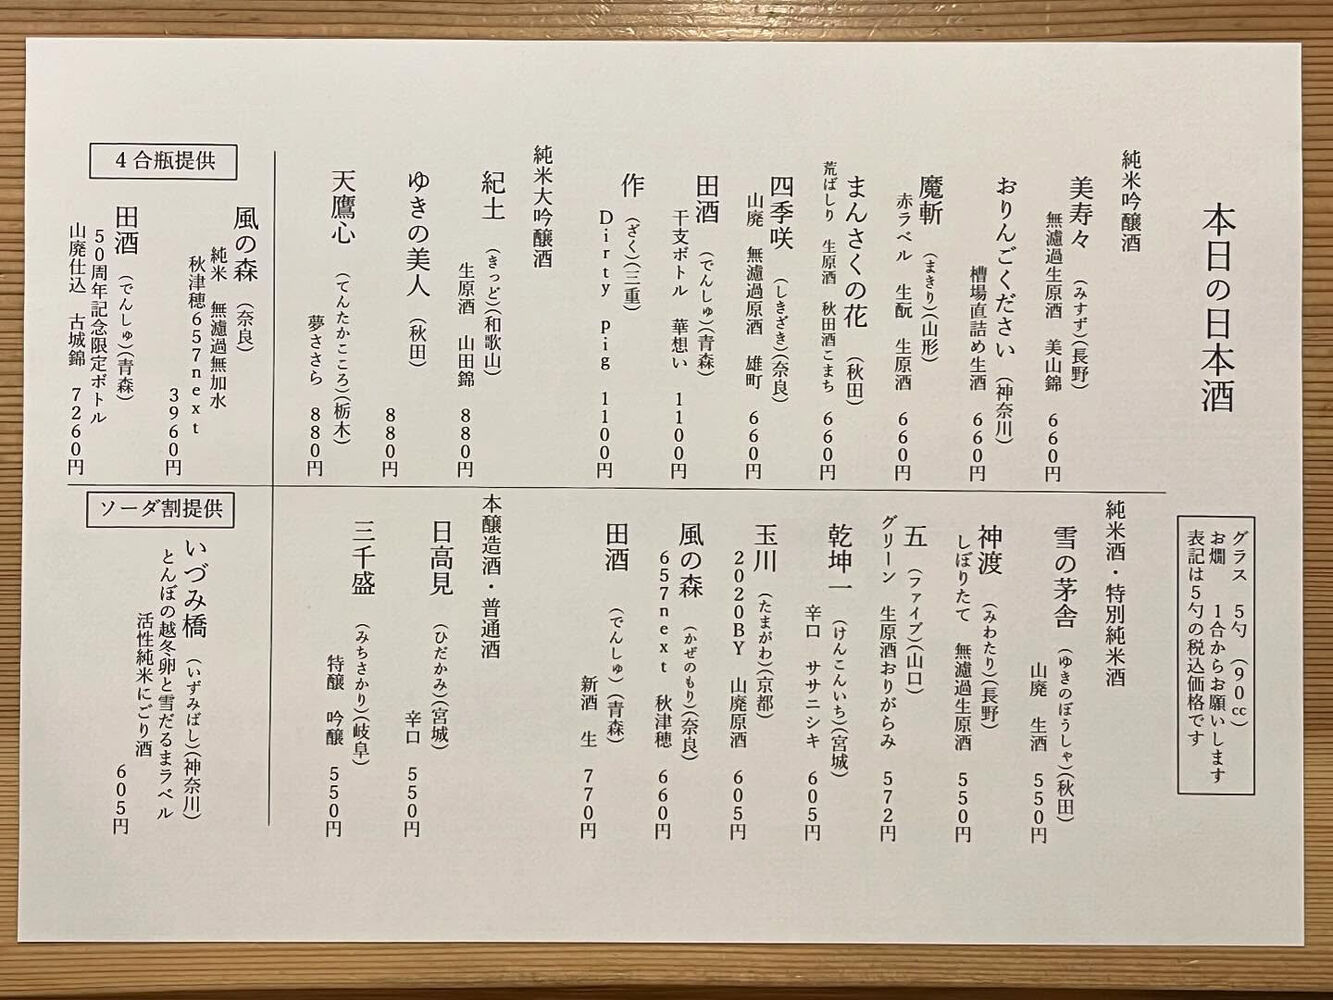 本日の日本酒
グラス　5勺　(90cc)
お燗　1合からお願いします
表記は5勺の税込価格です
純米吟醸酒
美寿々　(みすず)(長野)
無濾過生原酒　美山錦　660円
おりんごください　(神奈川)
槽場直詰め生酒　660円
魔斬　(まきり)(山形)
赤ラベル　生酛　生原酒　660円
まんさくの花　(秋田)
荒ばしり　生原酒　秋田酒こまち　660円
四季咲　(しきざき)(奈良)
山廃　無濾過原酒　雄町　660円
田酒　(でんしゅ)(青森)
干支ボトル　華想い　1100円
作　(ざく)(三重)
Dirty pig　1100円
純米大吟醸酒
紀土　(きっど)(和歌山)
生原酒　山田錦　880円
ゆきの美人　(秋田)
880円
天鷹心　(てんたかこころ)(栃木)
夢ささら　880円
純米酒・特別純米酒
雪の茅舎　(ゆきのぼうしゃ)(秋田)
山廃　生酒　550円
神渡　(みわたり)(長野)
しぼりたて　無濾過生原酒　550円
五　(ファイブ)(山口)
グリーン　生原酒おりがらみ　572円
乾坤一　(けんこんいち)(宮城)
辛口　ササニシキ　605円
玉川　(たまがわ)(京都)
2020BY　山廃原酒　605円
風の森　(かぜのもり)(奈良)
657next　秋津穂　660円
田酒　(でんしゅ)(青森)
新酒　生　770円
本醸造酒・普通酒
日高見　(ひだかみ)(宮城)
辛口　550円
三千盛　(みちさかり)(岐阜)
特醸　吟醸　550円
4合瓶提供
風の森　(奈良)
純米　無濾過無加水
秋津穂657next
3960円
田酒　(でんしゅ)(青森)
50周年記念限定ボトル
山廃仕込　古城錦　7260円
ソーダ割提供
いづみ橋　(いずみばし)(神奈川)
とんぼの越冬卵と雪だるまラベル
活性純米にごり酒
605円